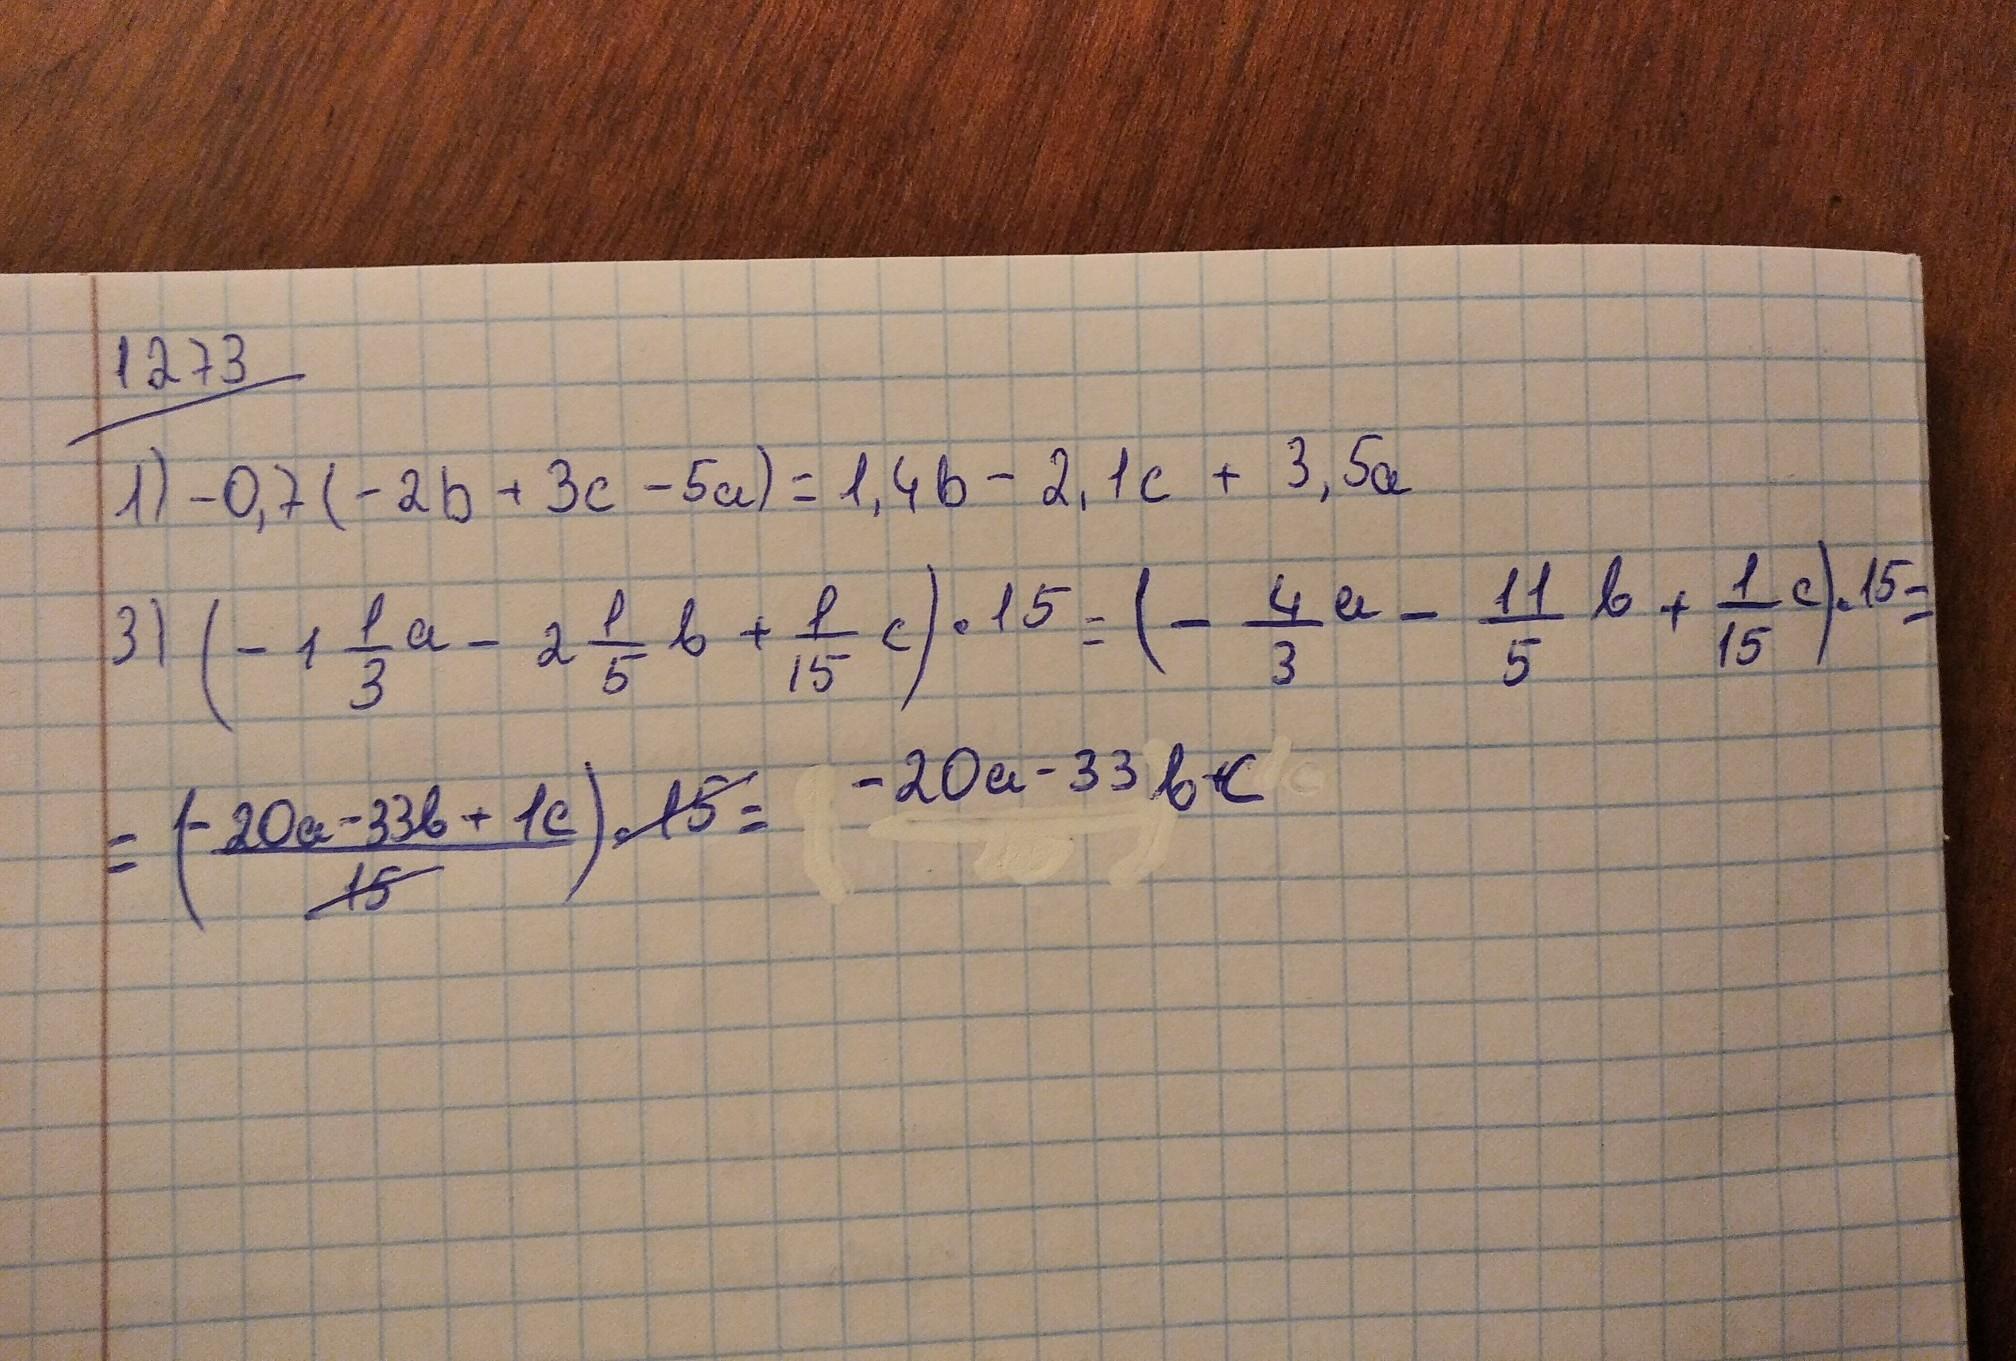 1273
1) -0,7(-2b + 3c - 5a) = 1,4b - 2,1c + 3,5a
3) (-1 1/3 a - 2 1/5 b + 1/15 c) · 15 = (- 4/3 a - 11/5 b + 1/15 c) · 15 =
= (-20a - 33b + 1c / 15) · 15 = -20a - 33b + c